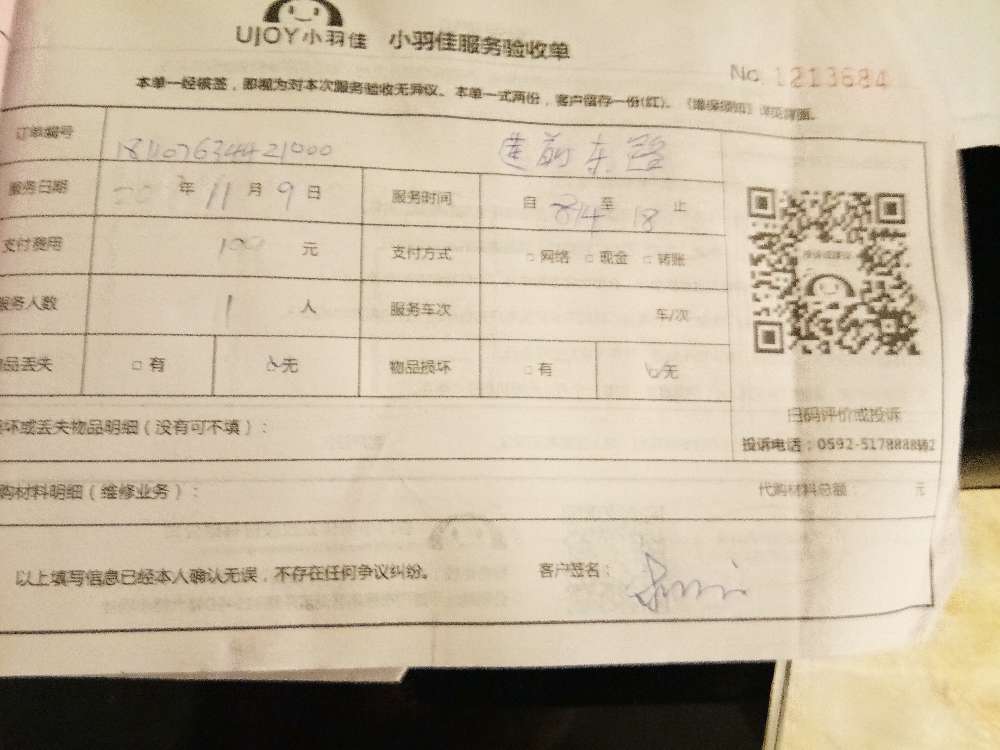 UJOY小羽佳 小羽佳服务验收单
No 1213684
本单一经核签，即视为对本次服务验收无异议。本单一式两份，客户留存一份(红)。《维保须知》详见背面。
订单编号 莲前东路
服务日期 年 11 月 9 日 服务时间 自 至 18 止
支付费用 元 支付方式 □网络 □现金 □转账
服务人数 1 人 服务车次 车/次
物品丢失 □有 □无 物品损坏 □有 □无
扫码评价或投诉
投诉电话：0592-5178888转2
损坏或丢失物品明细（没有可不填）：
代购材料明细（维修业务）： 代购材料总额： 元
以上填写信息已经本人确认无误，不存在任何争议纠纷。 客户签名：